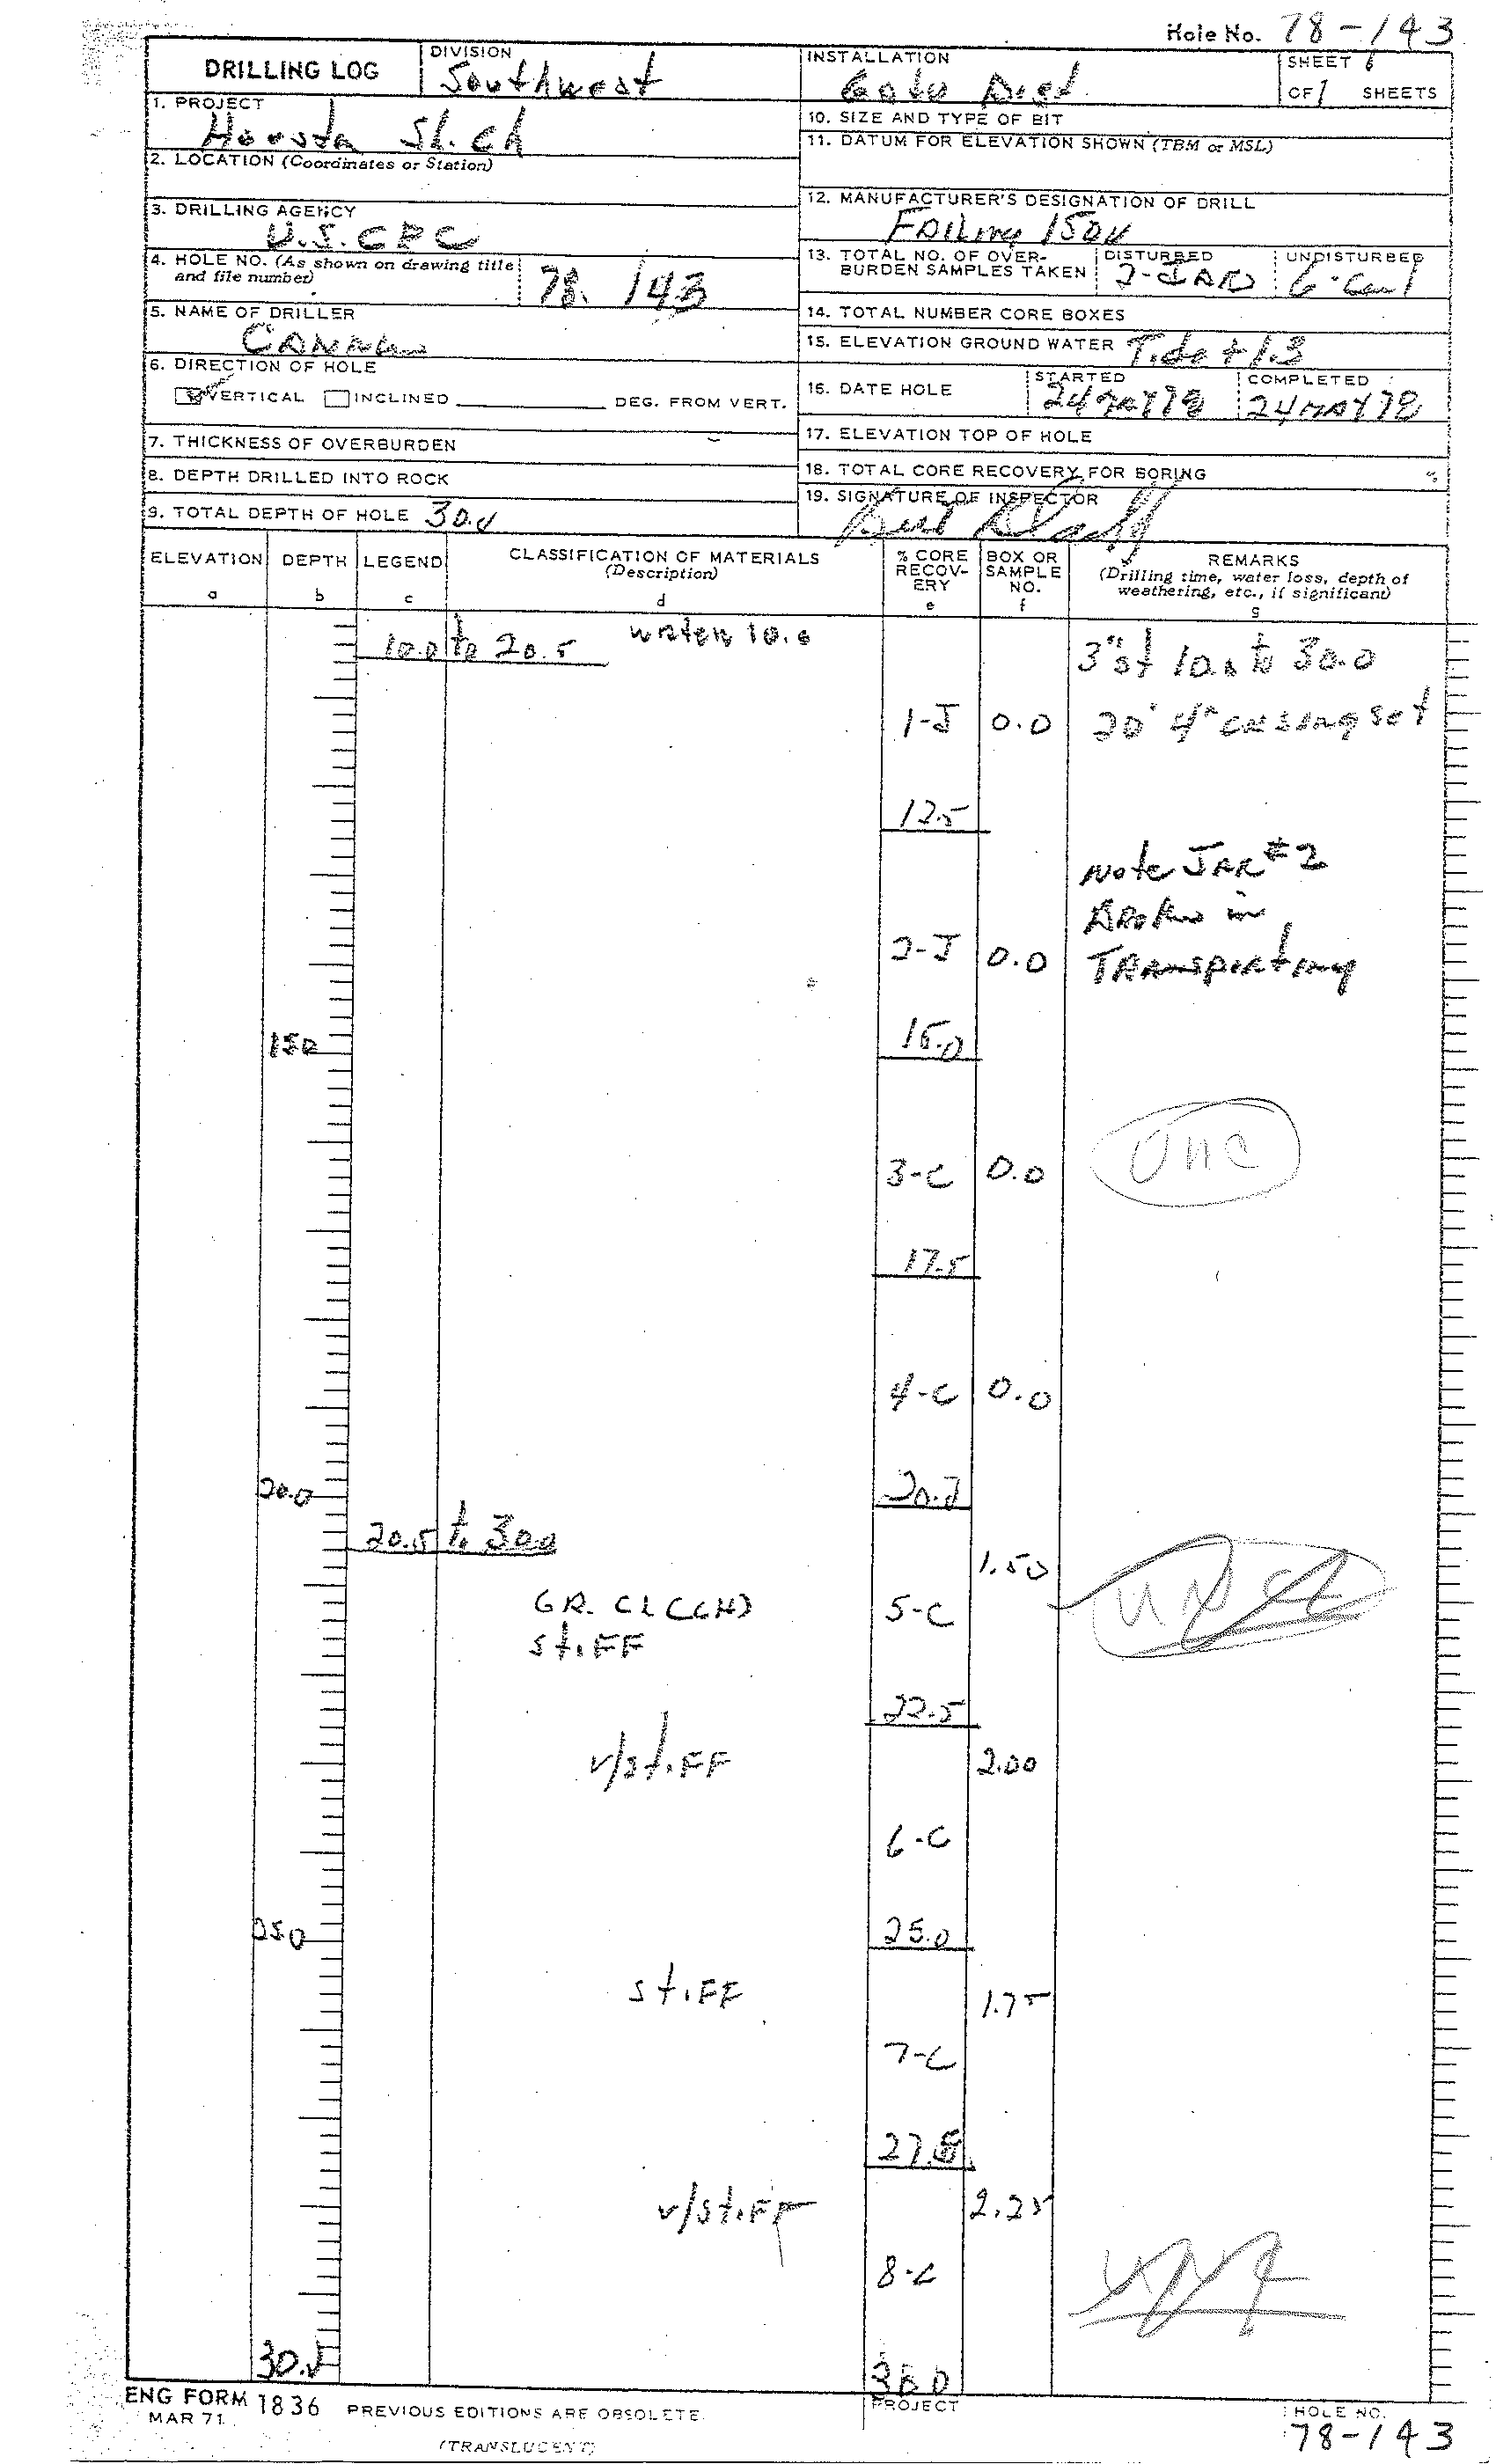 Hole No. 78-143
DRILLING LOG
DIVISION
Southwest
INSTALLATION
SHEET 1
OF 1 SHEETS
1. PROJECT
Sh. Ch
10. SIZE AND TYPE OF BIT
11. DATUM FOR ELEVATION SHOWN (TBM or MSL)
2. LOCATION (Coordinates or Station)
12. MANUFACTURER'S DESIGNATION OF DRILL
Failing 1500
3. DRILLING AGENCY
4. HOLE NO. (As shown on drawing title
and file number)
78. 143
13. TOTAL NO. OF OVER-
BURDEN SAMPLES TAKEN
DISTURBED
2-JAR
UNDISTURBED
6-
5. NAME OF DRILLER
14. TOTAL NUMBER CORE BOXES
15. ELEVATION GROUND WATER Tide + 1.3
6. DIRECTION OF HOLE
VERTICAL INCLINED DEG. FROM VERT.
16. DATE HOLE
STARTED
24 MAY 78
COMPLETED
24 MAY 78
7. THICKNESS OF OVERBURDEN
17. ELEVATION TOP OF HOLE
8. DEPTH DRILLED INTO ROCK
18. TOTAL CORE RECOVERY FOR BORING %
9. TOTAL DEPTH OF HOLE 30.0
19. SIGNATURE OF INSPECTOR
ELEVATION
a
DEPTH
b
LEGEND
c
CLASSIFICATION OF MATERIALS
(Description)
d
% CORE
RECOV-
ERY
e
BOX OR
SAMPLE
NO.
f
REMARKS
(Drilling time, water loss, depth of
weathering, etc., if significant)
g
10.0 to 20.5 water 10.0
3" st 10.0 to 30.0
1-J 0.0 20' 4" casing set
12.5
Note JAR #2
Broken in
2-J 0.0 Transporting
15.0
15.0
3-C 0.0
17.5
4-C 0.0
20.0
20.0
20.5 to 30.0
1.50
GR. CL (CH) 5-C
stiFF
22.5
v/stiFF 2.00
6-C
25.0 25.0
stiFF 1.75
7-C
27.5
v/stiFF 2.25
8-C
30.0 30.0
ENG FORM 1836
MAR 71
PREVIOUS EDITIONS ARE OBSOLETE.
(TRANSLUCENT)
PROJECT
HOLE NO.
78-143